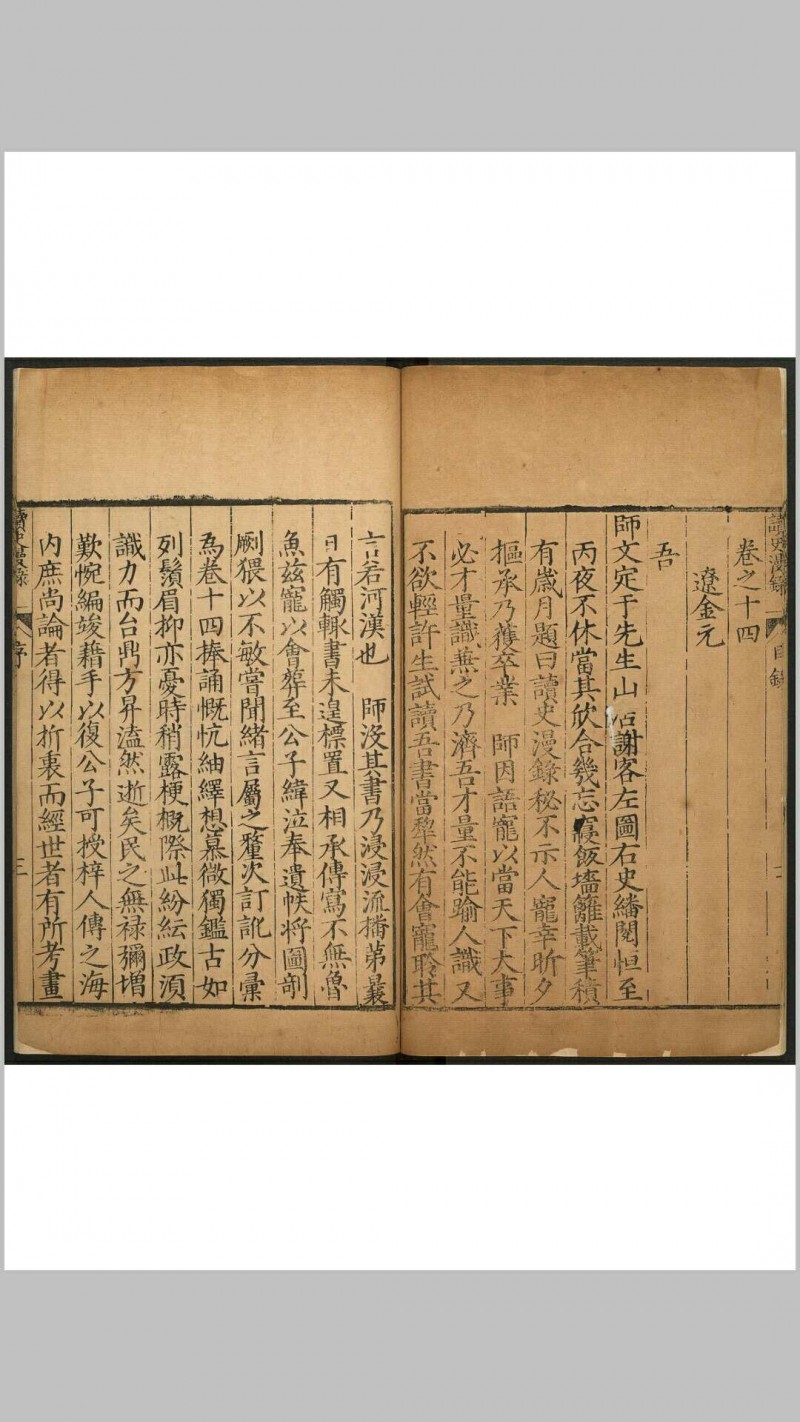 讀史漫錄
目錄
卷之十四
遼金元
吾
師文定于先生山居謝客左圖右史繙閱恒至
丙夜不休當其欣合幾忘寢飯墻籬載筆積
有歲月題曰讀史漫錄秘不示人寵幸昕夕
摳承乃獲卒業 師因語寵以當天下大事
必才量識兼之乃濟吾才量不能踰人識又
不欲輕許生試讀吾書當犂然有會寵聆其
言若河漢也 師沒其書乃浸浸流播第曩
日有觸輙書未遑標置又相承傳寫不無魯
魚兹寵以會葬至公子緯泣奉遺帙将圖剞
劂猥以不敏嘗聞緒言屬之釐次訂訛分彙
為卷十四捧誦慨忼紬繹想慕微獨鑑古如
列鬚眉抑亦憂時稍露梗概際此紛紜政湏
識力而台鼎方昇溘然逝矣民之無禄彌增
歎惋編竣藉手以復公子可授梓人傳之海
内庶尚論者得以折衷而經世者有所考畫
讀史漫錄
序